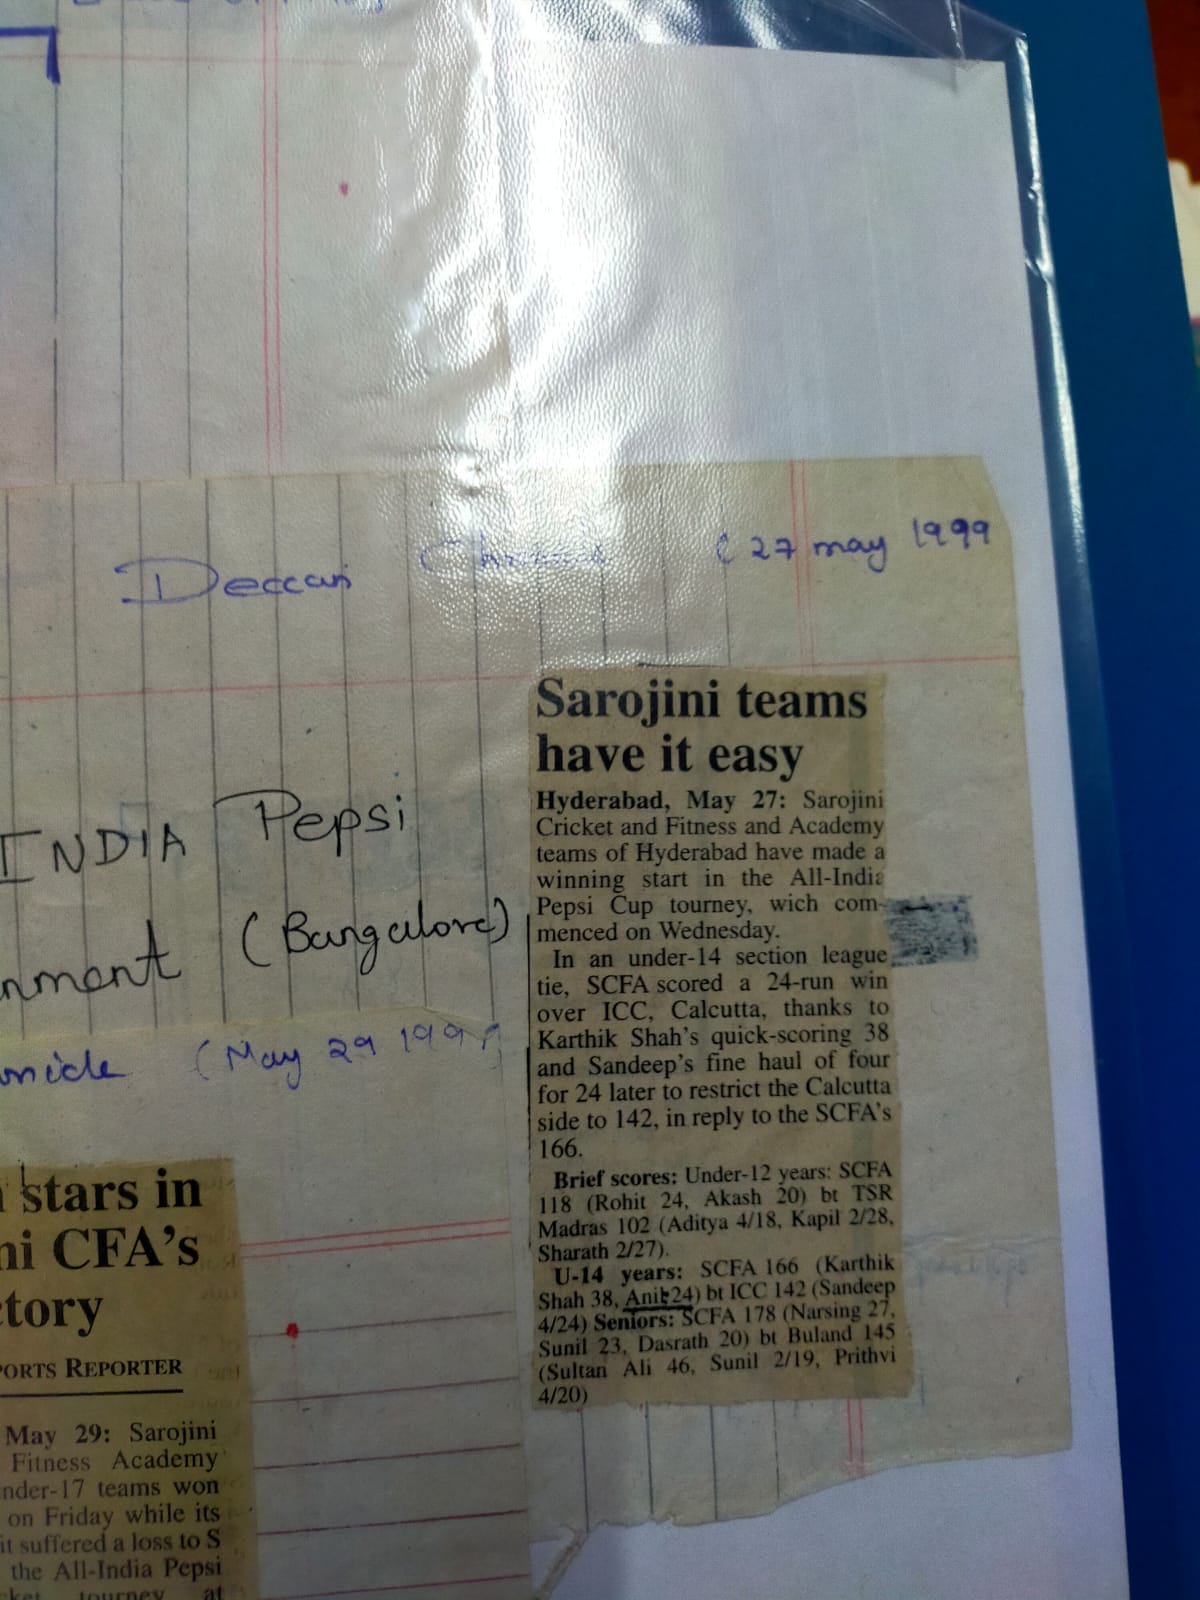 Deccan
( 27 may 1999
INDIA Pepsi
nment (Bangalore)
onicle (May 29 1999)
Sarojini teams
have it easy
Hyderabad, May 27: Sarojini
Cricket and Fitness and Academy
teams of Hyderabad have made a
winning start in the All-India
Pepsi Cup tourney, wich com-
menced on Wednesday.
In an under-14 section league
tie, SCFA scored a 24-run win
over ICC, Calcutta, thanks to
Karthik Shah's quick-scoring 38
and Sandeep's fine haul of four
for 24 later to restrict the Calcutta
side to 142, in reply to the SCFA's
166.
Brief scores: Under-12 years: SCFA
118 (Rohit 24, Akash 20) bt TSR
Madras 102 (Aditya 4/18, Kapil 2/28,
Sharath 2/27).
U-14 years: SCFA 166 (Karthik
Shah 38, Anil 24) bt ICC 142 (Sandeep
4/24) Seniors: SCFA 178 (Narsing 27,
Sunil 23, Dasrath 20) bt Buland 145
(Sultan Ali 46, Sunil 2/19, Prithvi
4/20)
stars in
ni CFA's
ctory
PORTS REPORTER
May 29: Sarojini
Fitness Academy
nder-17 teams won
on Friday while its
it suffered a loss to S
the All-India Pepsi
cket tourney at